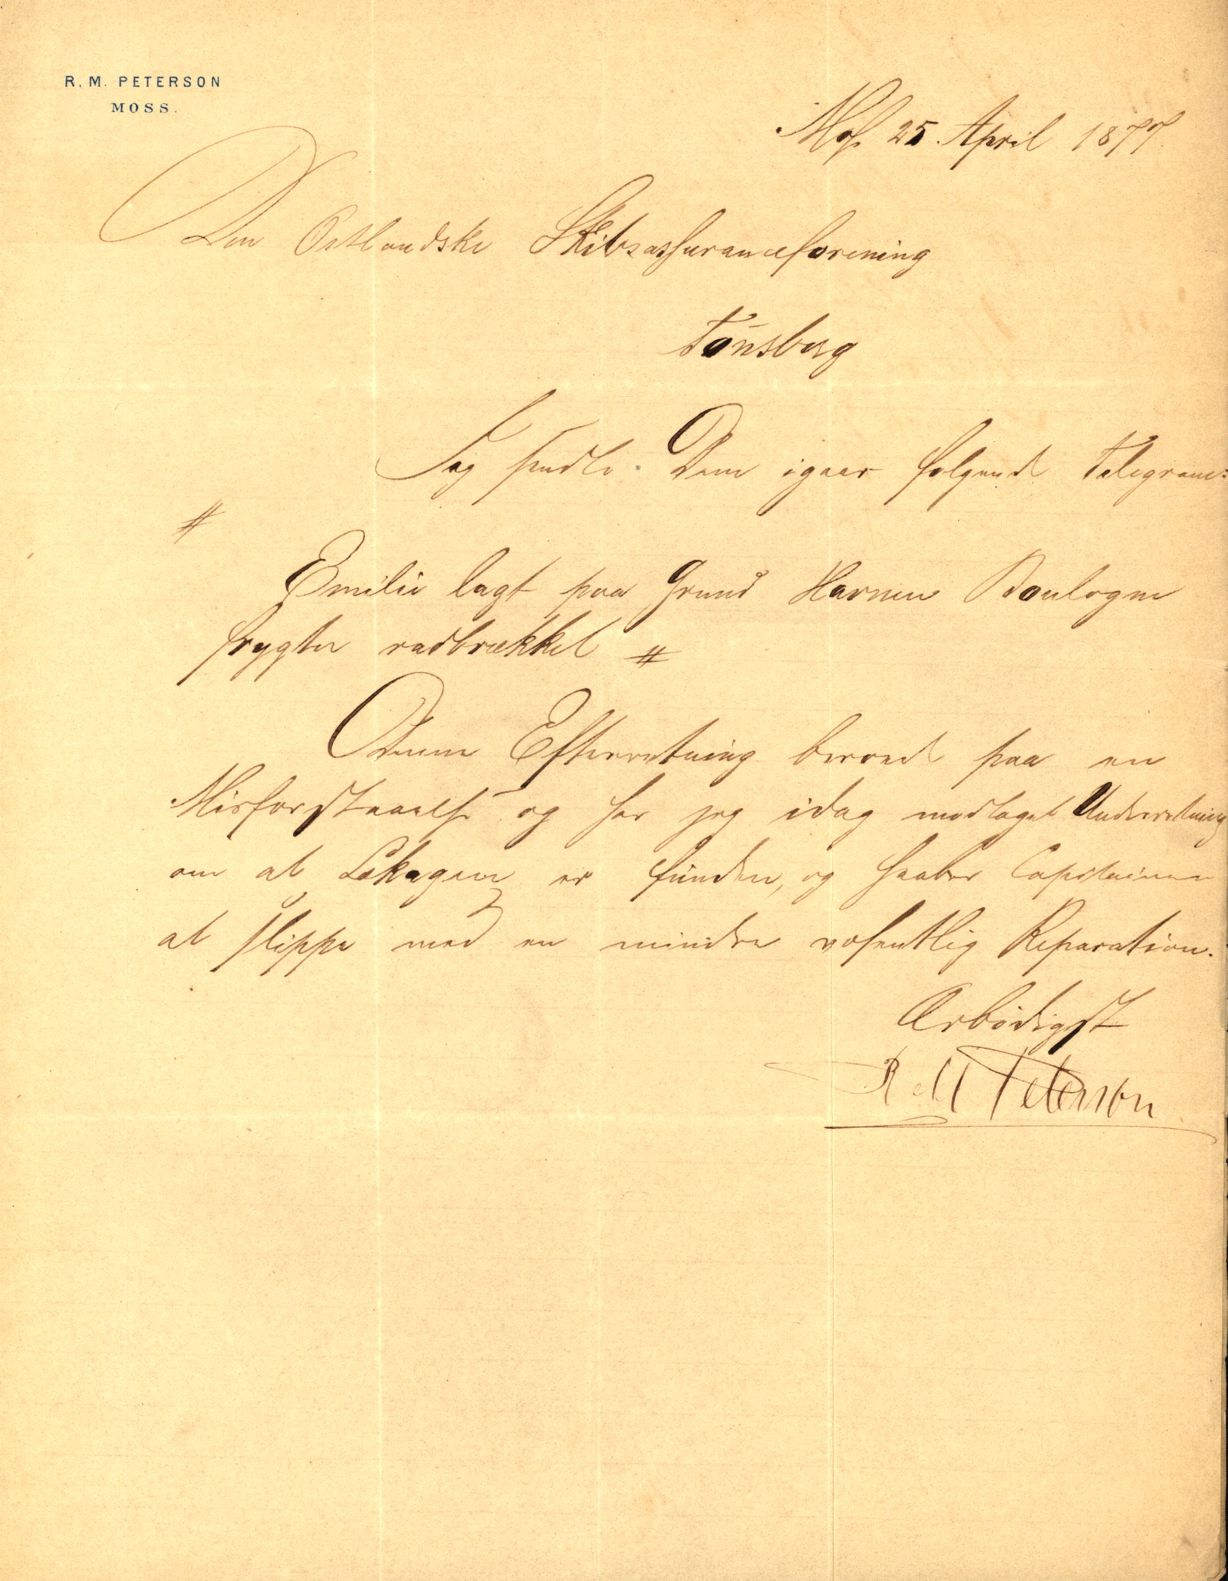 R. M. PETERSON
MOSS.
Moss 25. April 1877.
Den Ostlandske Skibsassuranceforening
Tönsberg
Jeg sendte Dem igaar følgende Telegram:
"
Emilie lagt paa Grund Havnen Boulogne
frygter radbrækket "
Denne Efterretning beroede paa en
Misforstaaelse og har jeg idag modtaget Underretning
om at Lækagen er funden, og haaber Capitainen
at slippe med en mindre væsentlig Reparation.
Ærbödigst
R M Peterson